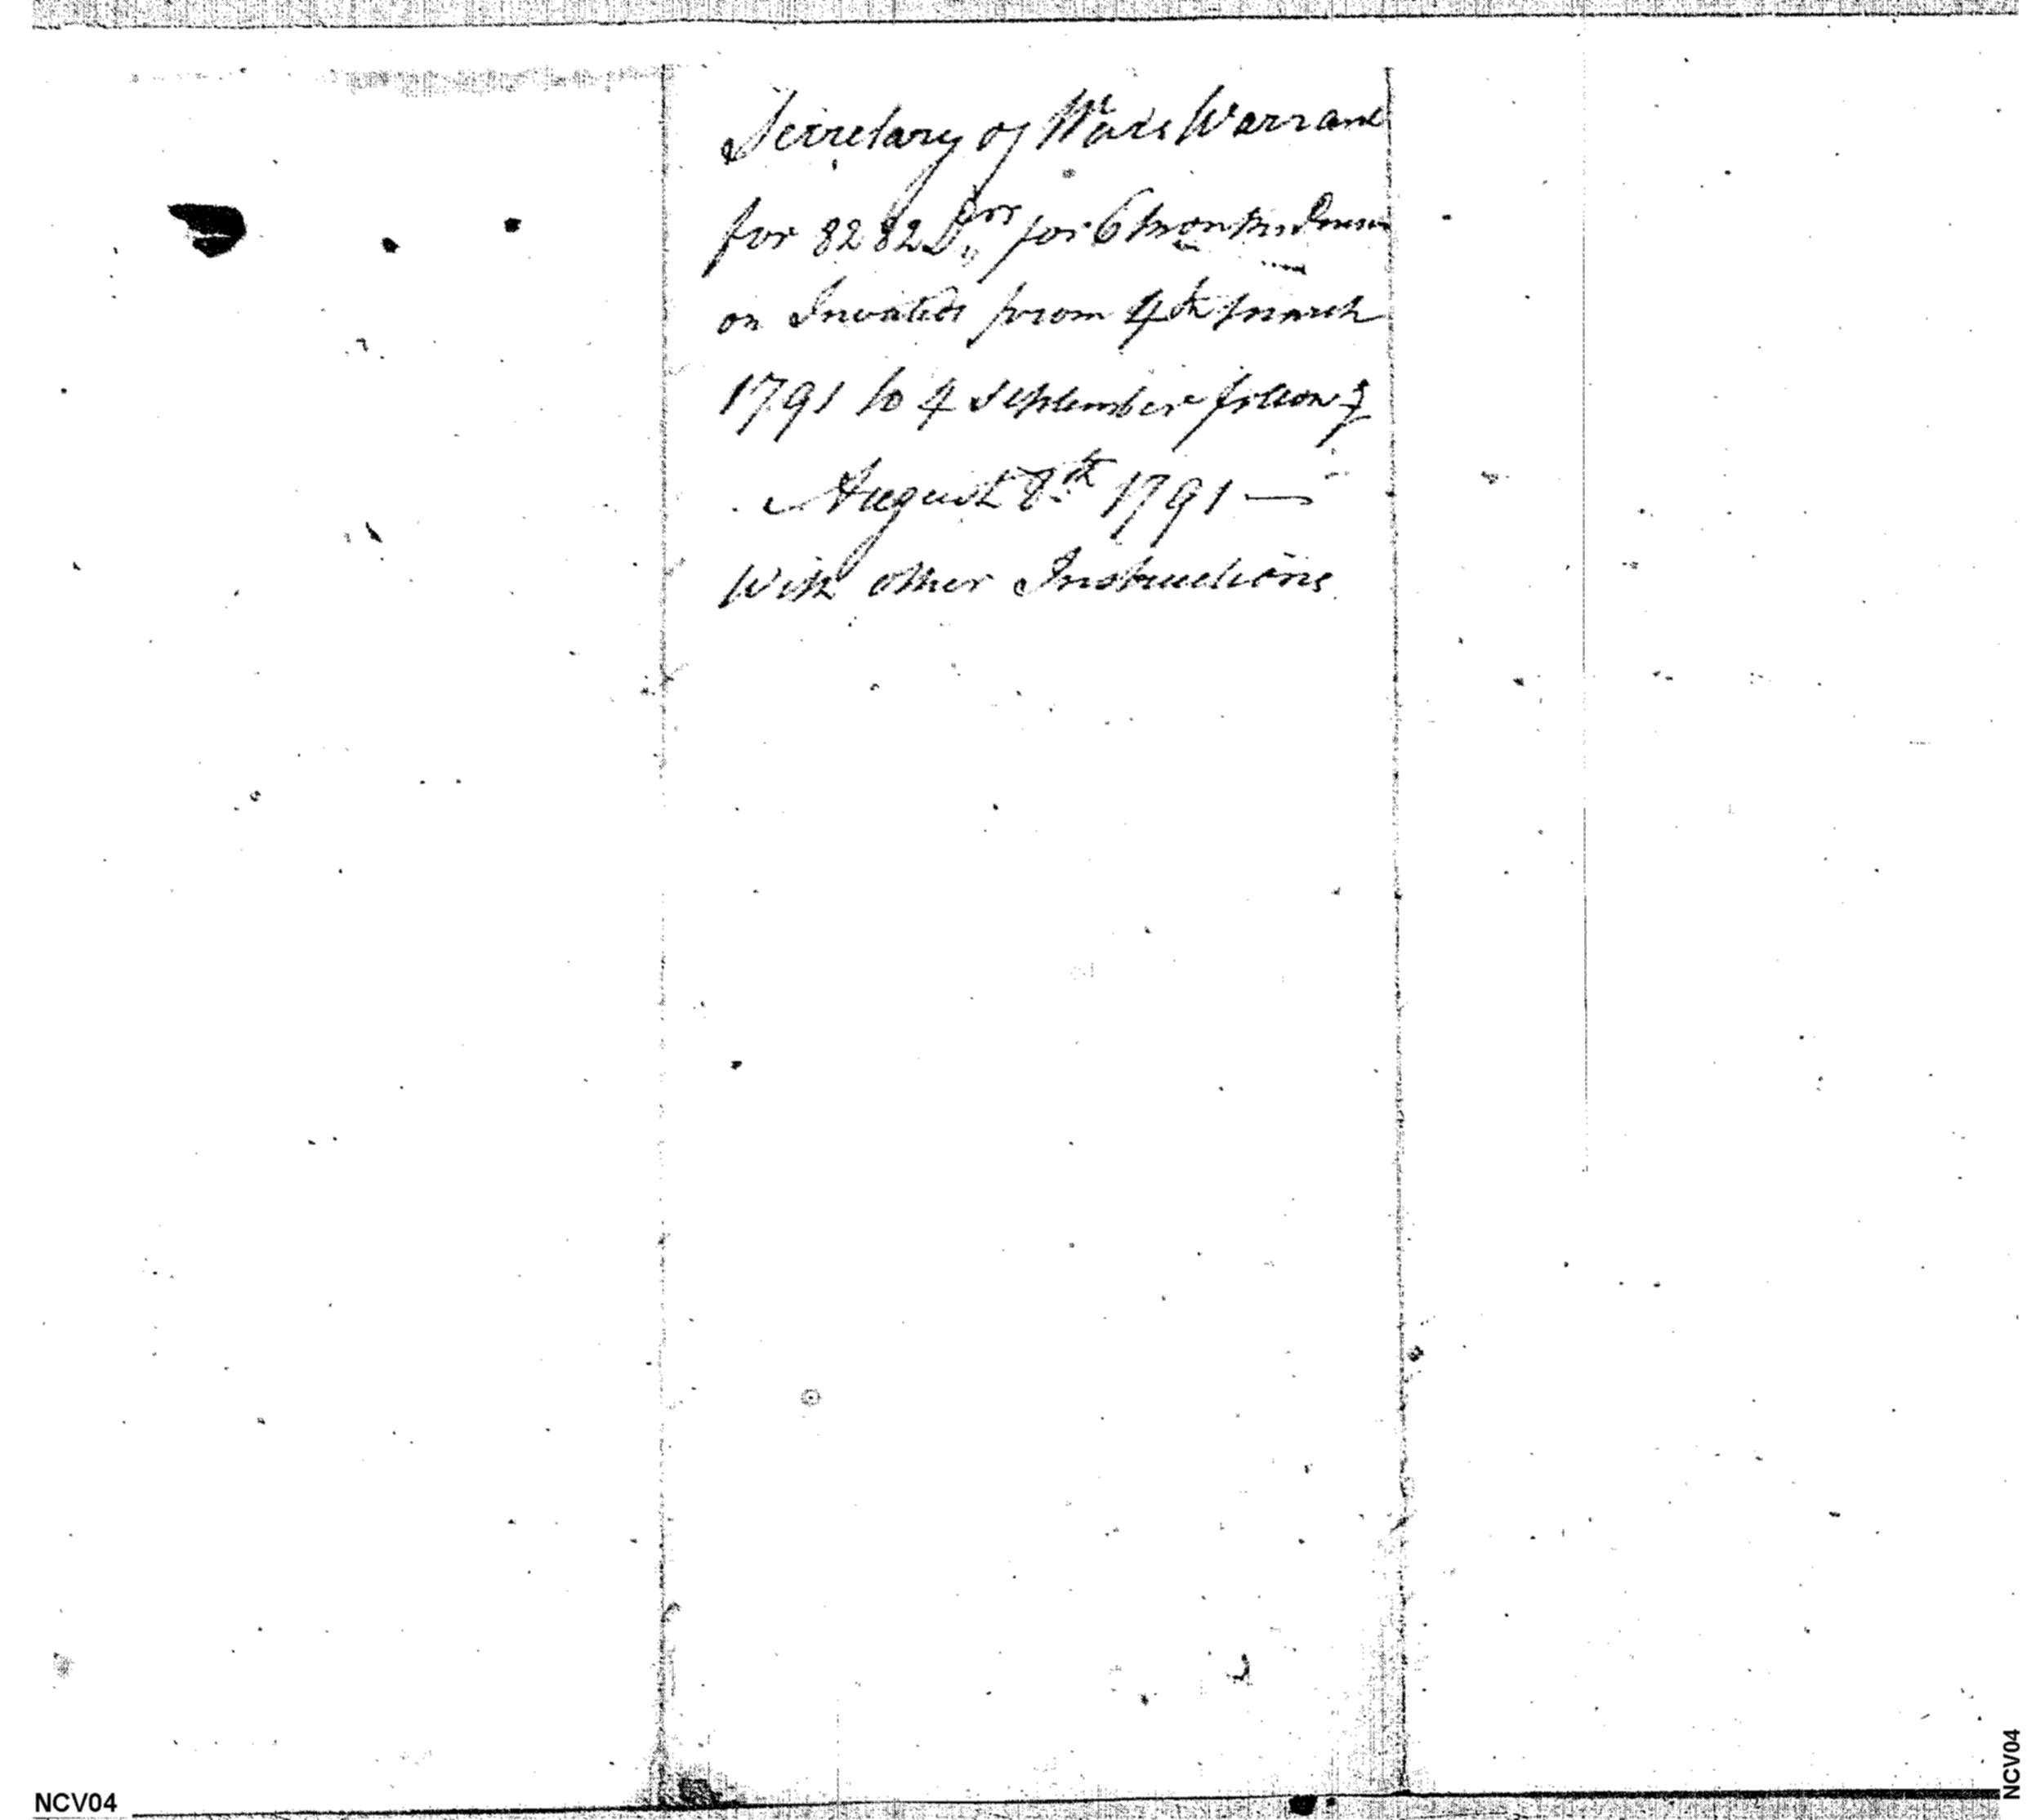 Secretary of Wars Warrant
for 8282 Drs for 6 months
on Invalids from 4th march
1791 to 4 September follow.g
August 8th 1791 —
With other Instructions
NCV04
NCV04